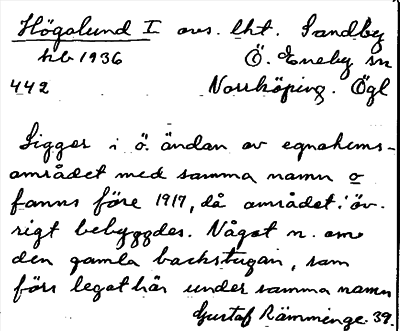 Högalund I avs. lht. Sandby
hb 1936 Ö. Eneby sn
442 Norrköping. Ögl
Ligger i ö. ändan av egnahems-
området med samma namn o
fanns före 1917, då området i öv-
rigt bebyggdes. Något n. om
den gamla backstugan, som
förs legat här under samma namn
Gustaf Rämminge 39.